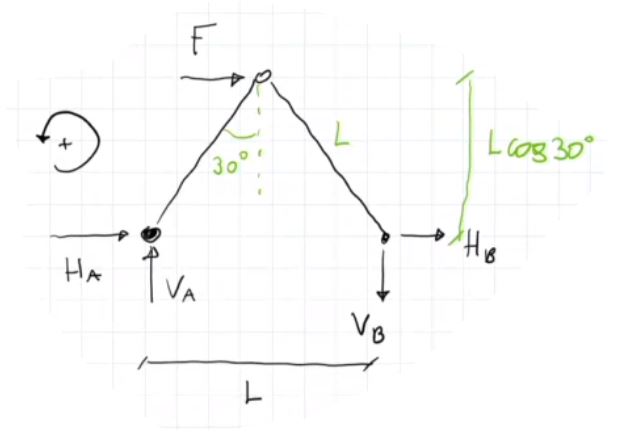 F
+
30°
L
L cos 30°
H_A
V_A
H_B
V_B
L